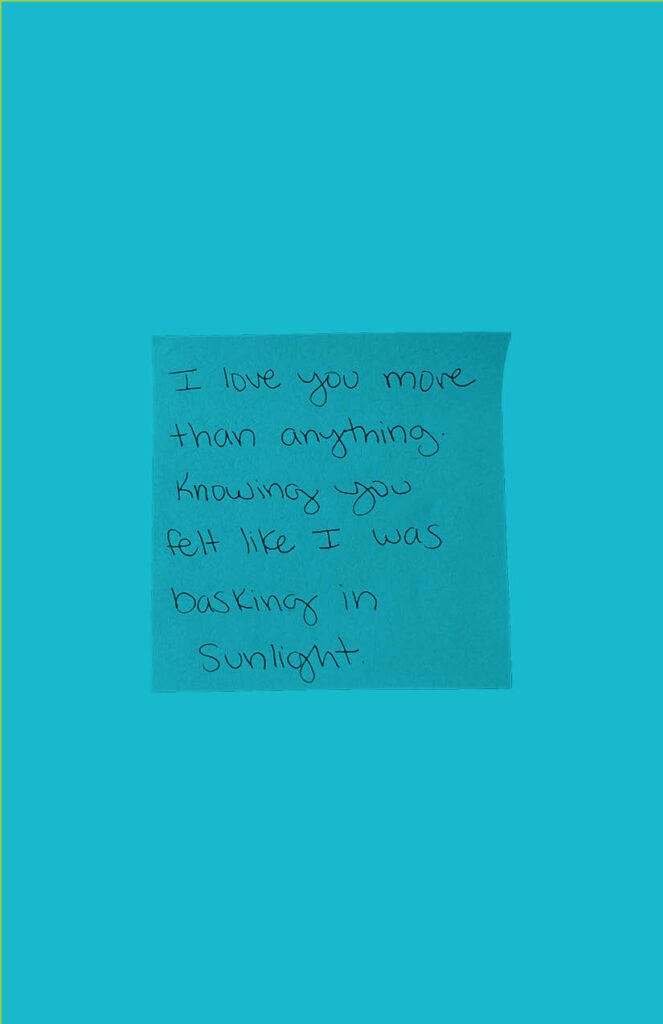 I love you more
than anything.
Knowing you
felt like I was
basking in
Sunlight.